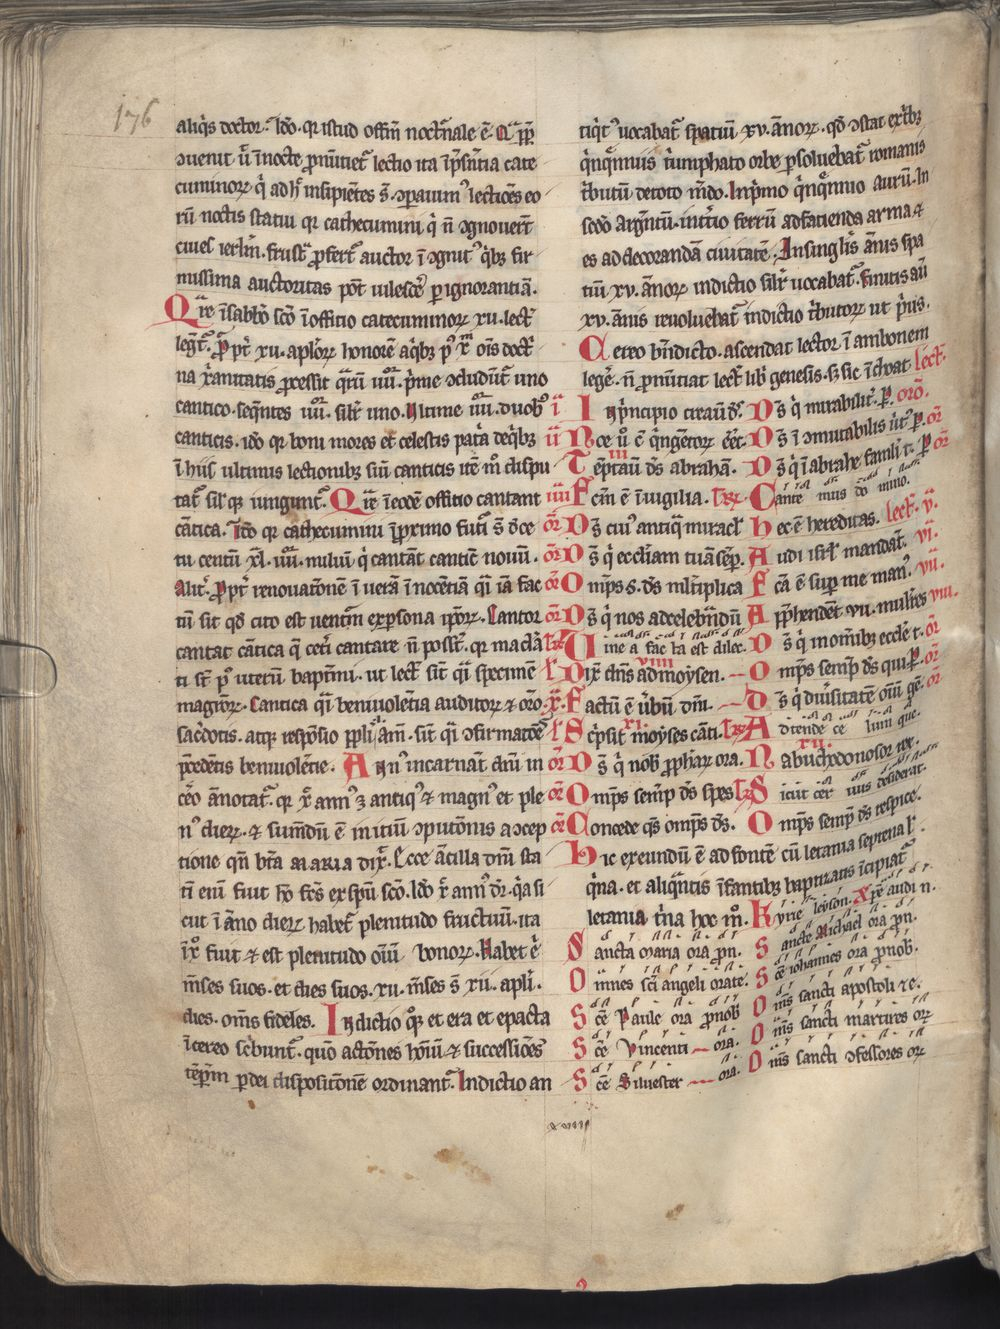 176
aliq̾s doctor. Iđo. qr istud offm̄ noct̾nale ē.
ↄuenit. ī nocte ꝓnūtiet̾ lectio ita īp̄sētia cate
cuminoꝝ q̾ adh̾ insipiētes s̄. ↄparaium lectiōes eo
rū noctis statui qr cathecumini q̾ n̄ ↄgnouer̄t
ciues ierl̄m. frust̾ ꝓfert̾ auctor īↄgnit᷒ qb᷒ fir
missima auctoritas pōt uilesc̾e ꝑ ignorantiā.
Q̾re ī sabb̾o sc̄o ī offitio catecuminoꝝ xu. lect̾
leg̾t̾. ꝓpt̾ xu. aplōꝝ honorē a qb᷒ p᷒ x̄m oīs doct̾
na xānitatis ꝓcessit
cantico. seqn̄tes iiii. silr̄ uno. Ultime iiii. duob᷒
canticis. iđo qr boni mores et celestis pat̾a de qb᷒
ī hiis ultimis lectionib᷒ siū canticis itē m̄ dispu
tat̾ sil̾ qꝫ iungunt̾. Q̾re ī eođ offitio cantant̾
cātica. Iđo qr cathecumini
tu centū xl. iiii. miliū q̾ cantāt canticū nouū.
Alit̾. ꝓpt̾ renouatōnē ī uerā īnocētiā q̾ iā fac
tū sit qđ cito est uentm̄ ex ꝑsona ip̄oꝝ. Cantor
cantat cātica q̄ cet̾i cantare n̄ poss̄t. qr macl̄a
ti sr̄ p᷒ uetetū baptm̄i. ut lect̾ sīt q̾ specimē
magr̄oꝝ. Cantica q̾ beniuolētia auditoꝝ ⁊ orō
sac̾dotis. atqꝫ respōsio ppl̄i am̄. sīt q̾ ↄfirmatōe
p̄cedētis beniuolētie. Anni incarnat̄ dn̄i in
c̾eo ānotat̾. qr x̄ ann᷒ ē antiq᷒ ⁊ magn᷒ et ple
n᷒ dieꝝ. ⁊ sumēdū ē initiū ↄputōnis a ↄcep
tione qn̄ btā maria dix̄. Ecce ācilla dn̄i sta
tī eiū fuit hō fc̄s ex spū sc̄o. Iđo x̄ ann᷒ dr̄. q̾a si
cut ī āno dieꝝ habet̾ plenitudo fructuū. ita
ī x̄o fuit ⁊ est plenitudo oīū bonoꝝ. Habet ē
mēses suos. et dies suos. xu. mēses s̄ xii. apl̄i.
dies. om̄s fideles. Indictio qꝫ et era et epacta
ī cereo sc̾bunt̾. quō actōnes hōiū ⁊ successiōes
tēpm̄ ꝑ dei dispositōnē ordinant̾. Indictio an
tiq̾t᷒ uocabat̾ spatiū xv. ānoꝝ. qđ ↄstat ex t̾b᷒
q̾nq̄nniis. t̾umphato orbe ꝑsoluebat̾ romanis
t̾butū de toto m̄do. In p̾mo q̾nq̄nnio aurū. In
sc̄do arg̾ntū. in t̾tio ferrū ad facienda arma ⁊
es ad decorandā ciuitatē. In singl̄is ānis spa
tiū xv. ānoꝝ indictio silr̄ uocabat̾. finitis aū
xv. ānis reuoluebat̾ indictio t̾butoꝝ ut p̾us.
Cereo bn̄dicto. ascendat lector ī ambonem
leg̾e. n̄ ꝓnūtiat lect̾ lib̾ genesis. sꝫ sic īchoat lect̾.
i In p̾ncipio creauit ds̄. Ds̄ q̾ mirabilit̾. P. orō.
ii Noe u̾ ē q̾ngētoꝝ ēēt. Ds̄ īↄmutabilis u̾t᷒ P. or̄
iii Tēptauit ds̄ abrahā. Ds̄ q̾ ī abrahe famli̾ t. P or̄
iiii Fcm̄ ē ī uigilia. Cante mus do mino.
or̄ Ds̄ cui᷒ antiq̄ miracl̄ Hec ē hereditas. Lect̾. v.
or̄ Ds̄ q̾ eccl̄iam tuā sēp̱. Audi isrl̄ mandat̾. vi.
or̄ Omps̄ s. ds̄ ml̄tiplica Fcā ē suꝑ me man̾. vii.
or̄ Ds̄ q̾ nos ad celebn̄dū Apphendēt vii. mulie̾s viii.
Vine a fac ta est dilec. Ds̄ q̾ ī omīb᷒ eccl̄e t. or̄
Dix̄ dn̄s ad moysen. viiii Omps̄ semp̱ ds̄ qui p̱. or̄
x. Factū ē u̾bū dm̄. Ds̄ q̾ diu̾sitatē oīū gē. or̄
Sc̾psit moyses cāti. xi. Adtende ce lum que.
or̄ Ds̄ q̾ nob̾ ꝓph̾aꝝ ora. Nabuchodonosor rex. xii.
or̄ Omps̄ semp̱ ds̄ spes Sicut cer uus desiderat.
or̄ Concede qs̄ omps̄ ds̄. Omps̄ semp̱ ds̄ respice.
Hic exeundū ē ad fontē cū letania septena l̾
q̾na. et aliq̄ntis īfantib᷒ baptizatis īcipiat̾
letania t̾na hoc m̄o. Kyrie leyson. Xp̄e audi n.
Sancta maria ora ꝓ n. Sancte Michael ora ꝓ n.
Omnes sc̄i angeli orate. Sc̄e iohannes ora ꝓ nob̾.
Sc̄e Paule ora ꝓ nob̾ Om̄s sancti apostoli ⁊e.
Sc̄e Vincenti ora. Om̄s sancti martires oꝝ
Sc̄e Siluester ora. Om̄s sancti ↄfessores oꝝ
xviiij